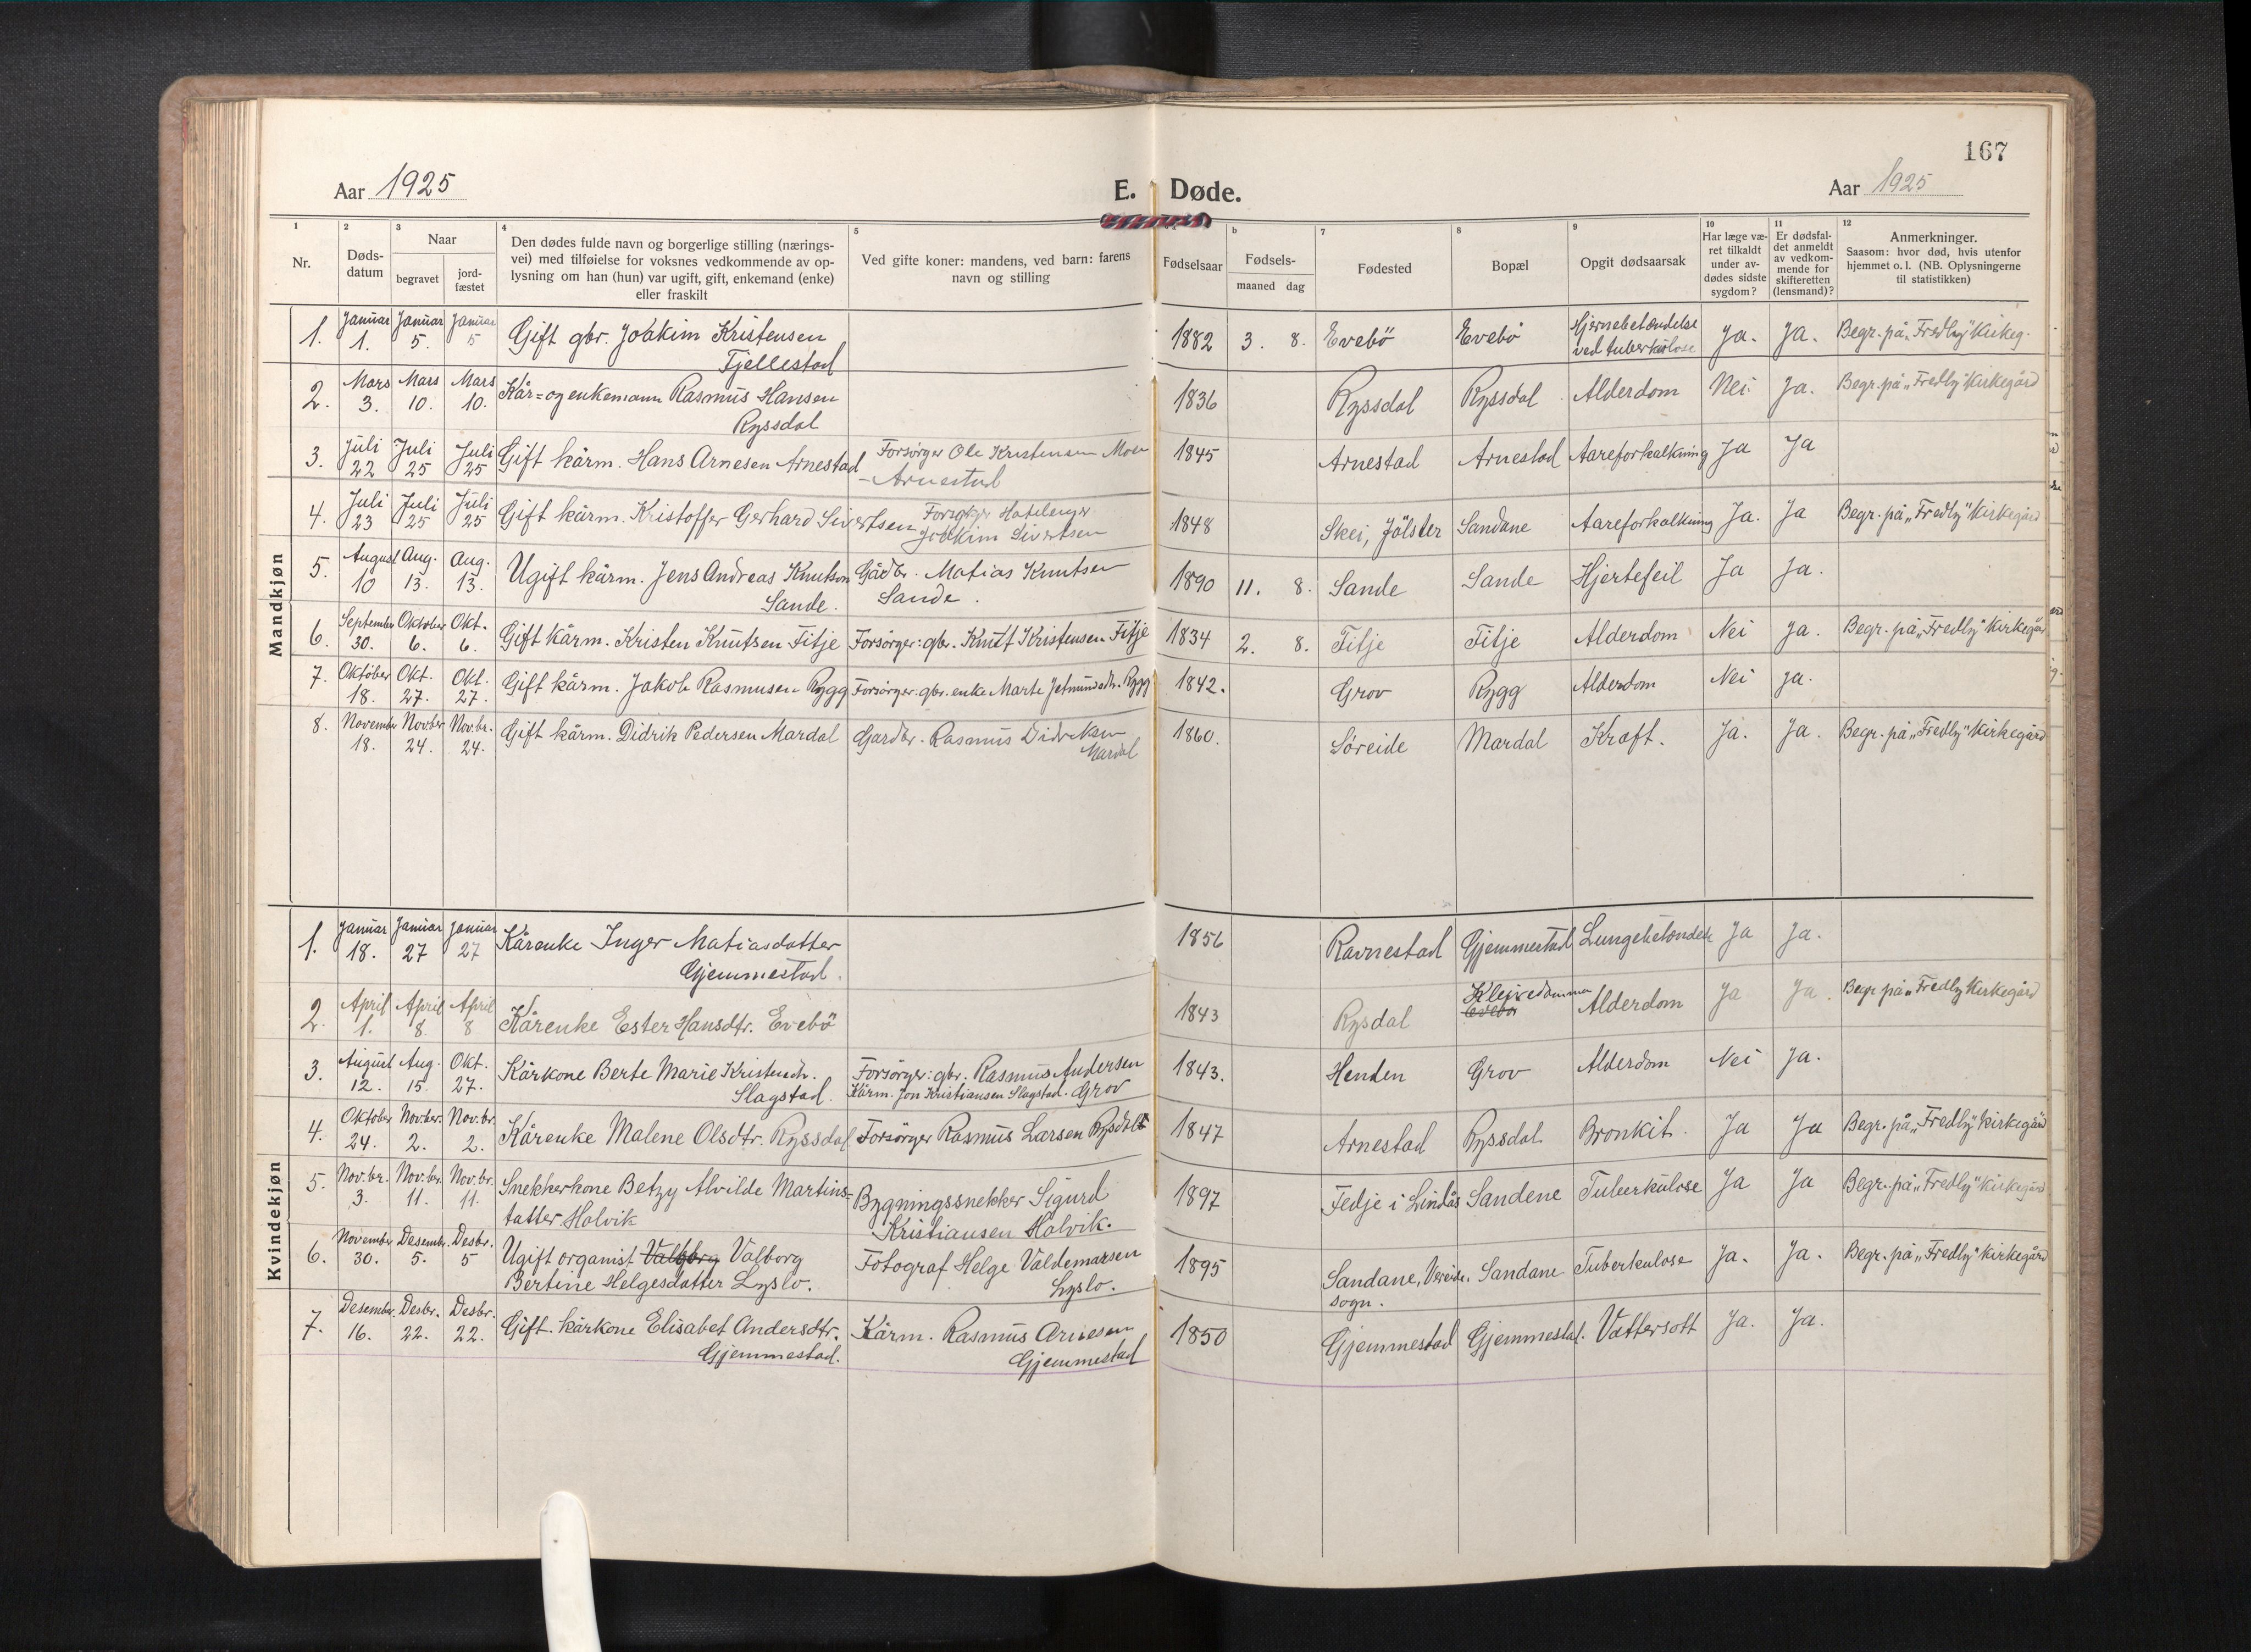 167
Aar 1925
E. Døde.
Aar 1925
1 2 3 4 5 b 7 8 9 10 11 12
Nr.
Døds-
datum
Naar
begravet
jord-
fæstet
Den dødes fulde navn og borgerlige stilling (nærings-
vei) med tilføielse for voksnes vedkommende av op-
lysning om han (hun) var ugift, gift, enkemand (enke)
eller fraskilt
Ved gifte koner: mandens, ved barn: farens
navn og stilling
Fødselsaar
Fødsels-
maaned dag
Fødested
Bopæl
Opgit dødsaarsak
Har læge væ-
ret tilkaldt
under av-
dødes sidste
sygdom?
Er dødsfal-
det anmeldt
av vedkom-
mende for
skifteretten
(lensmand)?
Anmerkninger.
Saasom: hvor død, hvis utenfor
hjemmet o. l. (NB. Oplysningerne
til statistikken)
Mandkjøn
1. Januar 1. Januar 5. Januar 5 Gift gbr. Joakim Kristensen
Fjellestad
1882 3. 8. Evebö Evebö Hjernebetændelse
ved tuberkulose
Ja. Ja. Begr. på „Fredly" Kirkeg.
2. Mars 3. Mars 10. Mars 10. Kår= og enkemann Rasmus Hansen
Ryssdal
1836 Ryssdal Ryssdal Alderdom Nei Ja. Begr. på „Fredly" Kirkegård
3. Juli 22 Juli 25 Juli 25 Gift kårm. Hans Arnesen Arnestad Forsörger Ole Kristensen Moen
- Arnestad
1845 Arnestad Arnestad Aareforkalkning Ja Ja
4. Juli 23 Juli 25 Juli 25 Gift kårm. Kristoffer Gerhard Sivertsen Forsørger
Joakim Sivertsen
1848 Skei, Jölster Sandane Aareforkalkning Ja. Ja Begr. på „Fredly" Kirkegård
5. August 10 Aug. 13. Aug. 13. Ugift kårm. Jens Andreas Knutson
Sande.
Gårdbr. Matias Knutsen
Sande.
1890 11. 8. Sande Sande Hjertefeil Ja Ja.
6. September 30. Oktober 6. Okt. 6. Gift kårm. Kristen Knutsen Fitje Forsörger: gbr. Knut Kristensen Fitje 1834 2. 8. Fitje Fitje Alderdom Nei Ja. Begr. på „Fredly" kirkegård
7. Oktober 18. Okt. 27. Okt. 27. Gift kårm. Jakob Rasmusen Rygg Forsörger: gbr. enke Marte Jetmundsdtr. Rygg 1842. Grov Rygg Alderdom Nei Ja.
8. November 18. Nov.ber 24. Nov.br. 24. Gift kårm. Didrik Pedersen Mardal Gardbr. Rasmus Didriksen
Mardal
1860. Söreide Mardal Kræft. Ja. Ja. Begr. på „Fredly" Kirkegård
Kvindekjøn
1. Januar 18. Januar 27 Januar 27 Kårenke Inger Matiasdatter
Gjemmestad.
1856 Ravnestad Gjemmestad Lungebetændelse Ja Ja.
2. April 1. April 8. April 8 Kårenke Ester Hansdtr. Evebö
1843 Rysdal Kleivedammen
Evebö
Alderdom Ja Ja. Begr. på „Fredly" Kirkegård
3. August 12. Aug. 15. Okt. 27. Kårkone Berte Marie Kristensdtr.
Slagstad.
Forsörger: gbr. Rasmus Andersen
Kårm. Jon Kristiansen Slagstad. Grov
1843. Henden Grov Alderdom Nei Ja.
4. Oktober 24. Nov.ber. 2. Nov.br. 2. Kårenke Malene Olsdtr. Ryssdal Forsörger Rasmus Larsen Rysdal 1847 Arnestad Ryssdal Bronkit. Ja Ja Begr. på „Fredly" kirkegård
5. Nov.br. 3. Nov.br. 11. Nov.br. 11. Snekkerkone Betzy Alvilde Martins=
tatter Holvik
Bygningssnekker Sigurd
Kristiansen Holvik.
1897 Fedje i Lindås Sandene Tuberkulose Ja Ja Begr. på „Fredly" Kirkegård
6. November 30. Desembr. 5. Desbr. 5 Ugift organist Valborg Valborg
Bertine Helgesdatter Lyslo.
Fotograf Helge Valdemarsen
Lyslo.
1895 Sandane, Vereide
sogn.
Sandane Tuberkulose Ja. Ja. Begr. på „Fredly" Kirkegård
7. Desembr. 16. Desbr. 22. Desbr. 22. Gift. kårkone Elisabet Andersdtr.
Gjemmestad.
Kårm. Rasmus Arnesen
Gjemmestad
1850 Gjemmestad Gjemmestad. Vattersott Ja. Ja.